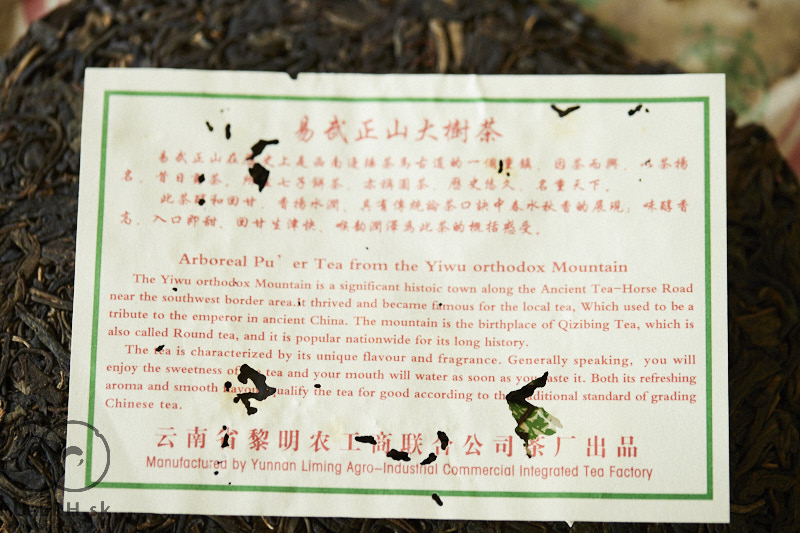 易武正山大樹茶
易武正山在 史上是西南邊陲茶馬古道的一個重鎮，因茶而興， 茶揚
名，昔日貢茶， 七子餅茶，亦稱圓茶，歷史悠久，名重天下。
此茶醇和回甘，香揚水潤，具有傳統論茶口訣中春水秋香的展現；味醇香
高，入口即甜，回甘生津快，喉韻潤澤爲此茶的概括感受。
Arboreal Pu' er Tea from the Yiwu orthodox Mountain
The Yiwu orthodox Mountain is a significant histoic town along the Ancient Tea-Horse Road
near the southwest border area.it thrived and became famous for the local tea, Which used to be a
tribute to the emperor in ancient China. The mountain is the birthplace of Qizibing Tea, which is
also called Round tea, and it is popular nationwide for its long history.
The tea is characterized by its unique flavour and fragrance. Generally speaking, you will
enjoy the sweetness of tea and your mouth will water as soon as you taste it. Both its refreshing
aroma and smooth flavour qualify the tea for good according to the traditional standard of grading
Chinese tea.
云南省黎明农工商联合公司茶厂出品
Manufactured by Yunnan Liming Agro-Industrial Commercial Integrated Tea Factory